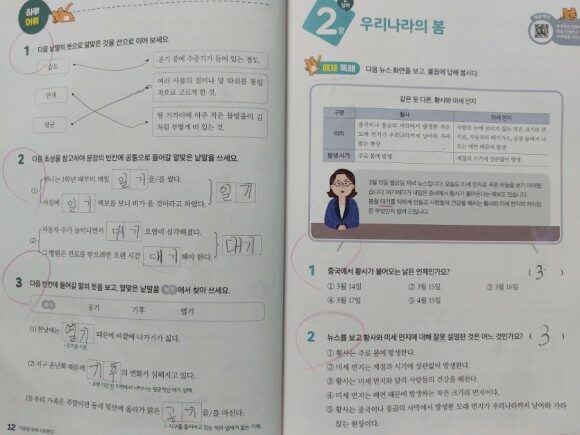 하루
어휘
1 다음 낱말의 뜻으로 알맞은 것을 선으로 이어 보세요.
습도
공기 중에 수증기가 들어 있는 정도.
안개
여러 사물의 질이나 양 따위를 통일
적으로 고르게 한 것.
평균
땅 가까이에 아주 작은 물방울이 김
처럼 부옇게 떠 있는 것.
2 다음 초성을 참고하여 문장의 빈칸에 공통으로 들어갈 알맞은 낱말을 쓰세요.
(1) 언니는 1학년 때부터 매일 일기 을/를 썼다.
아침에 일기 예보를 보니 비가 올 것이라고 하였다.
일기
(2) 자동차 수가 늘어나면서 대기 오염이 심각해졌다.
그 병원은 진료를 받으려면 오랜 시간 대기 해야 한다.
대기
3 다음 빈칸에 들어갈 말의 뜻을 보고, 알맞은 낱말을 보기에서 찾아 쓰세요.
보기
공기 기후 열기
(1) 한낮에는 열기 때문에 바깥에 나가기가 싫다.
뜨거운 기운.
(2) 지구 온난화 때문에 기후 의 변화가 심해지고 있다.
(3) 우리 가족은 주말이면 동네 뒷산에 올라가 맑은 공기 을/를 마신다.
지구를 둘러싸고 있는 색과 냄새가 없는 기체.
12
2장
우리나라의 봄
매체 독해 다음 뉴스 화면을 보고, 물음에 답해 봅시다.
같은 듯 다른, 황사와 미세 먼지
구분 황사 미세 먼지
의미
중국이나 몽골의 사막에서 발생한 작은
모래 먼지가 우리나라까지 날아와 가라
앉는 현상
사람의 눈에 보이지 않는 작은 크기의 먼
지로, 자동차의 배기가스, 공장 등에서 나
오는 매연 때문에 발생
발생 시기 주로 봄에 발생 계절과 시기에 상관없이 발생
3월 15일 월요일 저녁 뉴스입니다. 오늘도 미세 먼지로 푸른 하늘을 보기 어려웠
습니다. 여기에다가 내일은 중국에서 황사가 불어온다는 예보도 있습니다.
봄철 대기를 탁하게 만들고 사람들의 건강을 해치는 황사와 미세 먼지의 차이점
은 무엇인지 알려 드립니다.
1 중국에서 황사가 불어오는 날은 언제인가요? ( 3 )
① 3월 14일 ② 3월 15일 ③ 3월 16일
④ 3월 17일 ⑤ 4월 15일
2 뉴스를 보고 황사와 미세 먼지에 대해 잘못 설명한 것은 어느 것인가요? ( 3 )
① 황사는 주로 봄에 발생한다.
② 미세 먼지는 계절과 시기에 상관없이 발생한다.
③ 황사는 미세 먼지와 달리 사람들의 건강을 해친다.
④ 미세 먼지는 매연 때문에 발생하는 작은 크기의 먼지이다.
⑤ 황사는 중국이나 몽골의 사막에서 발생한 모래 먼지가 우리나라까지 날아와 가라
앉는 현상이다.